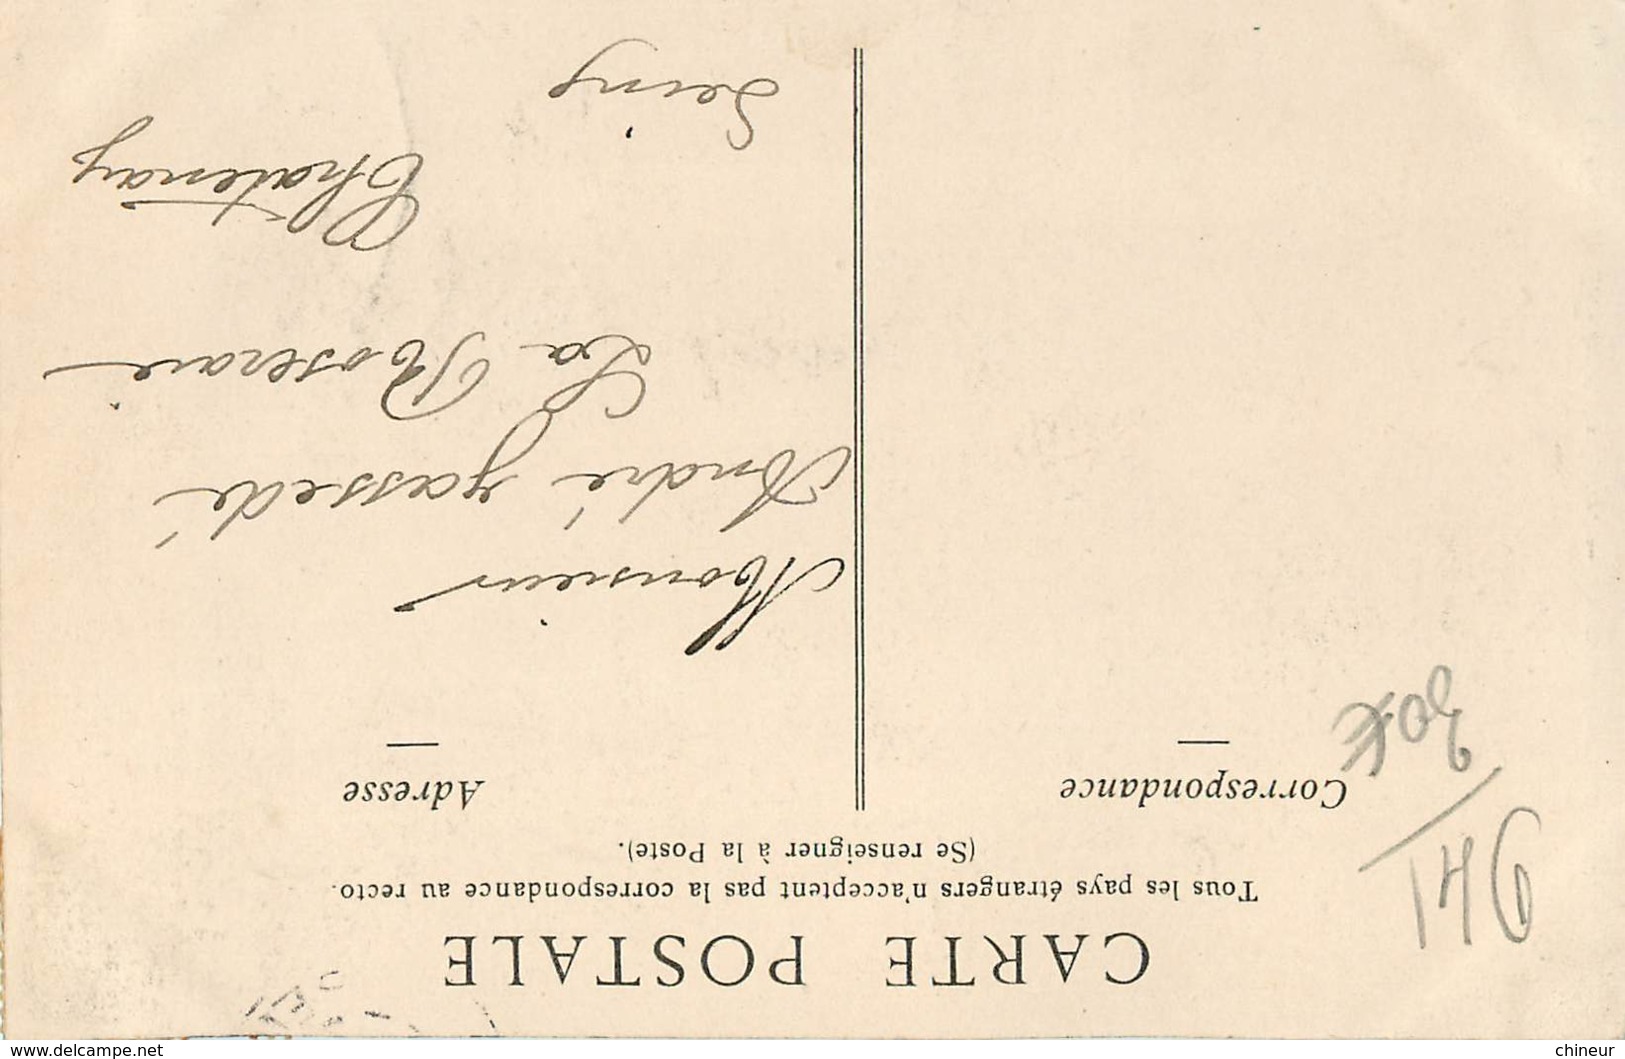 CARTE POSTALE
Tous les pays étrangers n'acceptent pas la correspondance au recto.
(Se renseigner à la Poste).
Correspondance
30€
Adresse
Monsieur
André Gassedé
La Roseraie
Châtenay
Seine
www.delcampe.net
chineur